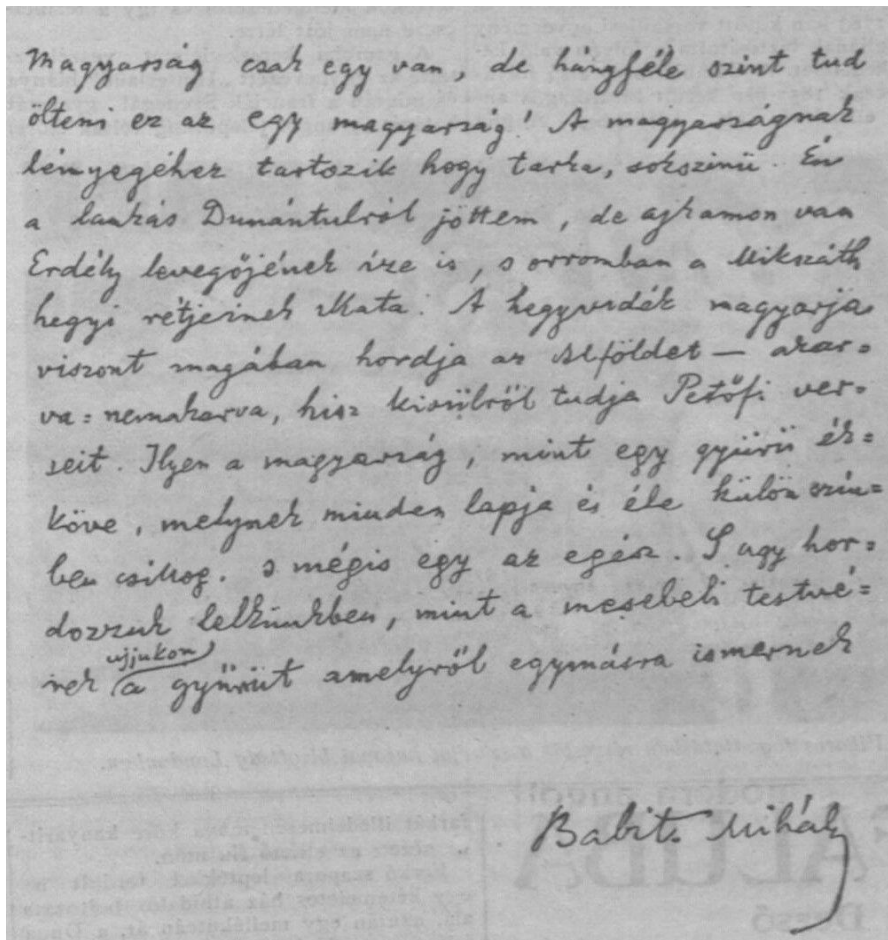 Magyarság csak egy van, de hányféle szint tud
ölteni ez az egy magyarság! A magyarságnak
lényegéhez tartozik hogy tarka, sokszinü. Én
a lankás Dunántulról jöttem, de ajkamon van
Erdély levegőjének ize is, s orromban a Mikszáth
hegyi rétjeinek illata. A hegyvidék magyarja
viszont magában hordja az Alföldet — akar-
va-nemakarva, hisz kivülről tudja Petőfi ver-
seit. Ilyen a magyarság, mint egy gyürü ék-
köve, melynek minden lapja és éle külön szin-
ben csillog. s mégis egy az egész. S ugy hor-
dozzuk lelkünkben, mint a mesebeli testvé-
ujjukon
rek a gyűrüt amelyről egymásra ismernek
Babits Mihály